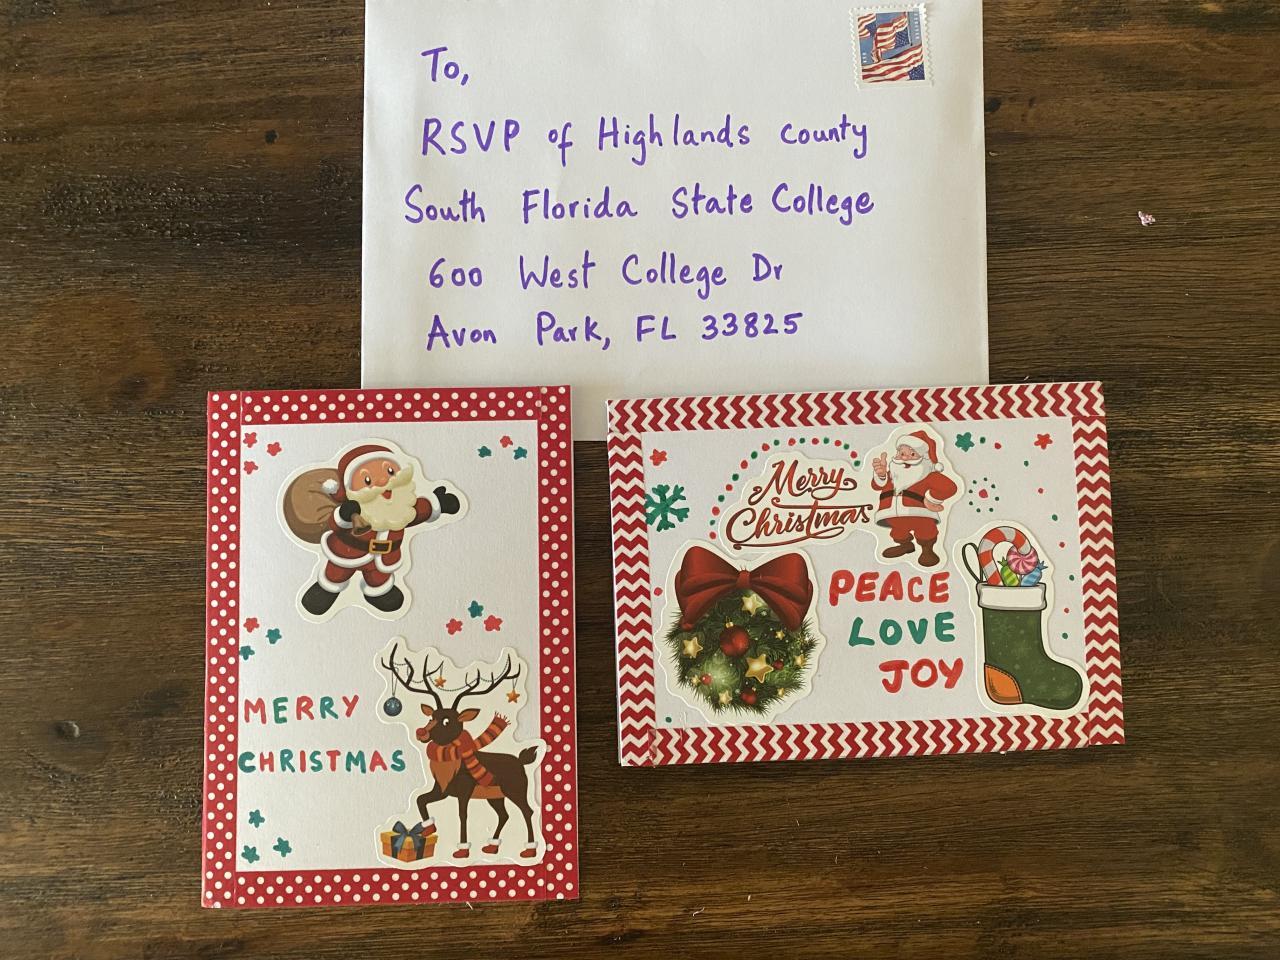 To,
RSVP of Highlands county
South Florida State College
600 West College Dr
Avon Park, FL 33825
MERRY
CHRISTMAS
Merry
Christmas
PEACE
LOVE
JOY